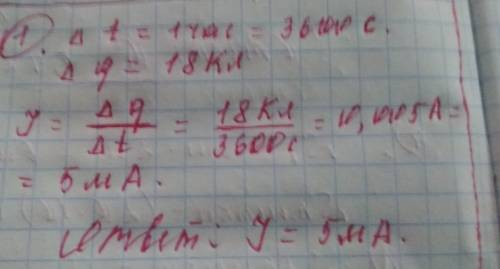 1. Δt = 1 час = 3600 с.
Δq = 18 Кл
I = Δq/Δt = 18 Кл/3600 с = 0,005 А =
= 5 мА.
Ответ: I = 5 мА.